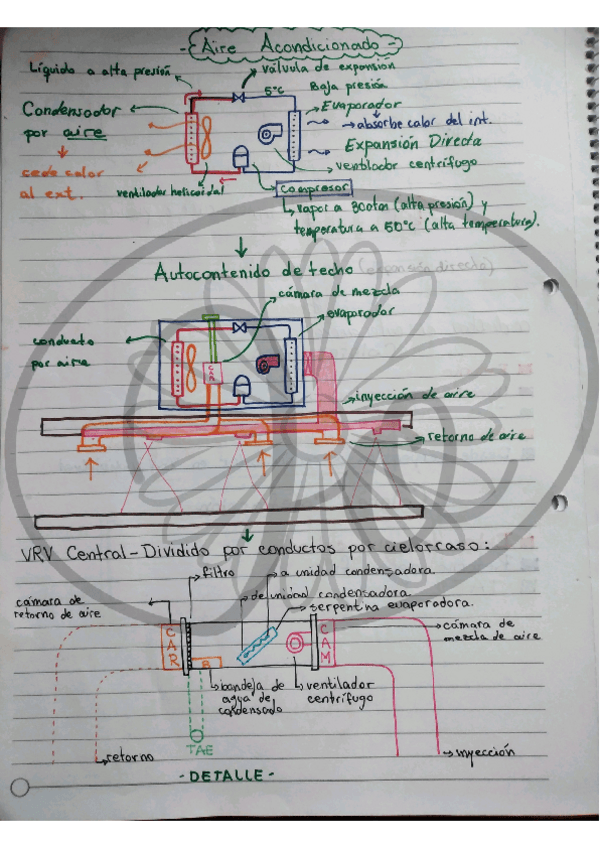 - Aire Acondicionado -
Líquido a alta presión
válvula de expansión
5°C
Baja presión
Evaporador
absorbe calor del int.
Expansión Directa
ventilador centrífugo
Condensador
por aire
cede calor
al ext.
ventilador helicoidal
compresor
vapor a 300tor (alta presión) y
temperatura a 50°c (alta temperatura).
Autocontenido de techo (expansión directa)
cámara de mezcla
evaporador
conducto
por aire
inyección de aire
retorno de aire
VRV Central - Dividido por conductos por cielorraso:
filtro
a unidad condensadora
de unidad condensadora
serpentina evaporadora.
cámara de
retorno de aire
CAR
CAM
cámara de
mezcla de aire
B
bandeja de
agua de
condensado
ventilador
centrífugo
TAE
retorno
inyección
- DETALLE -